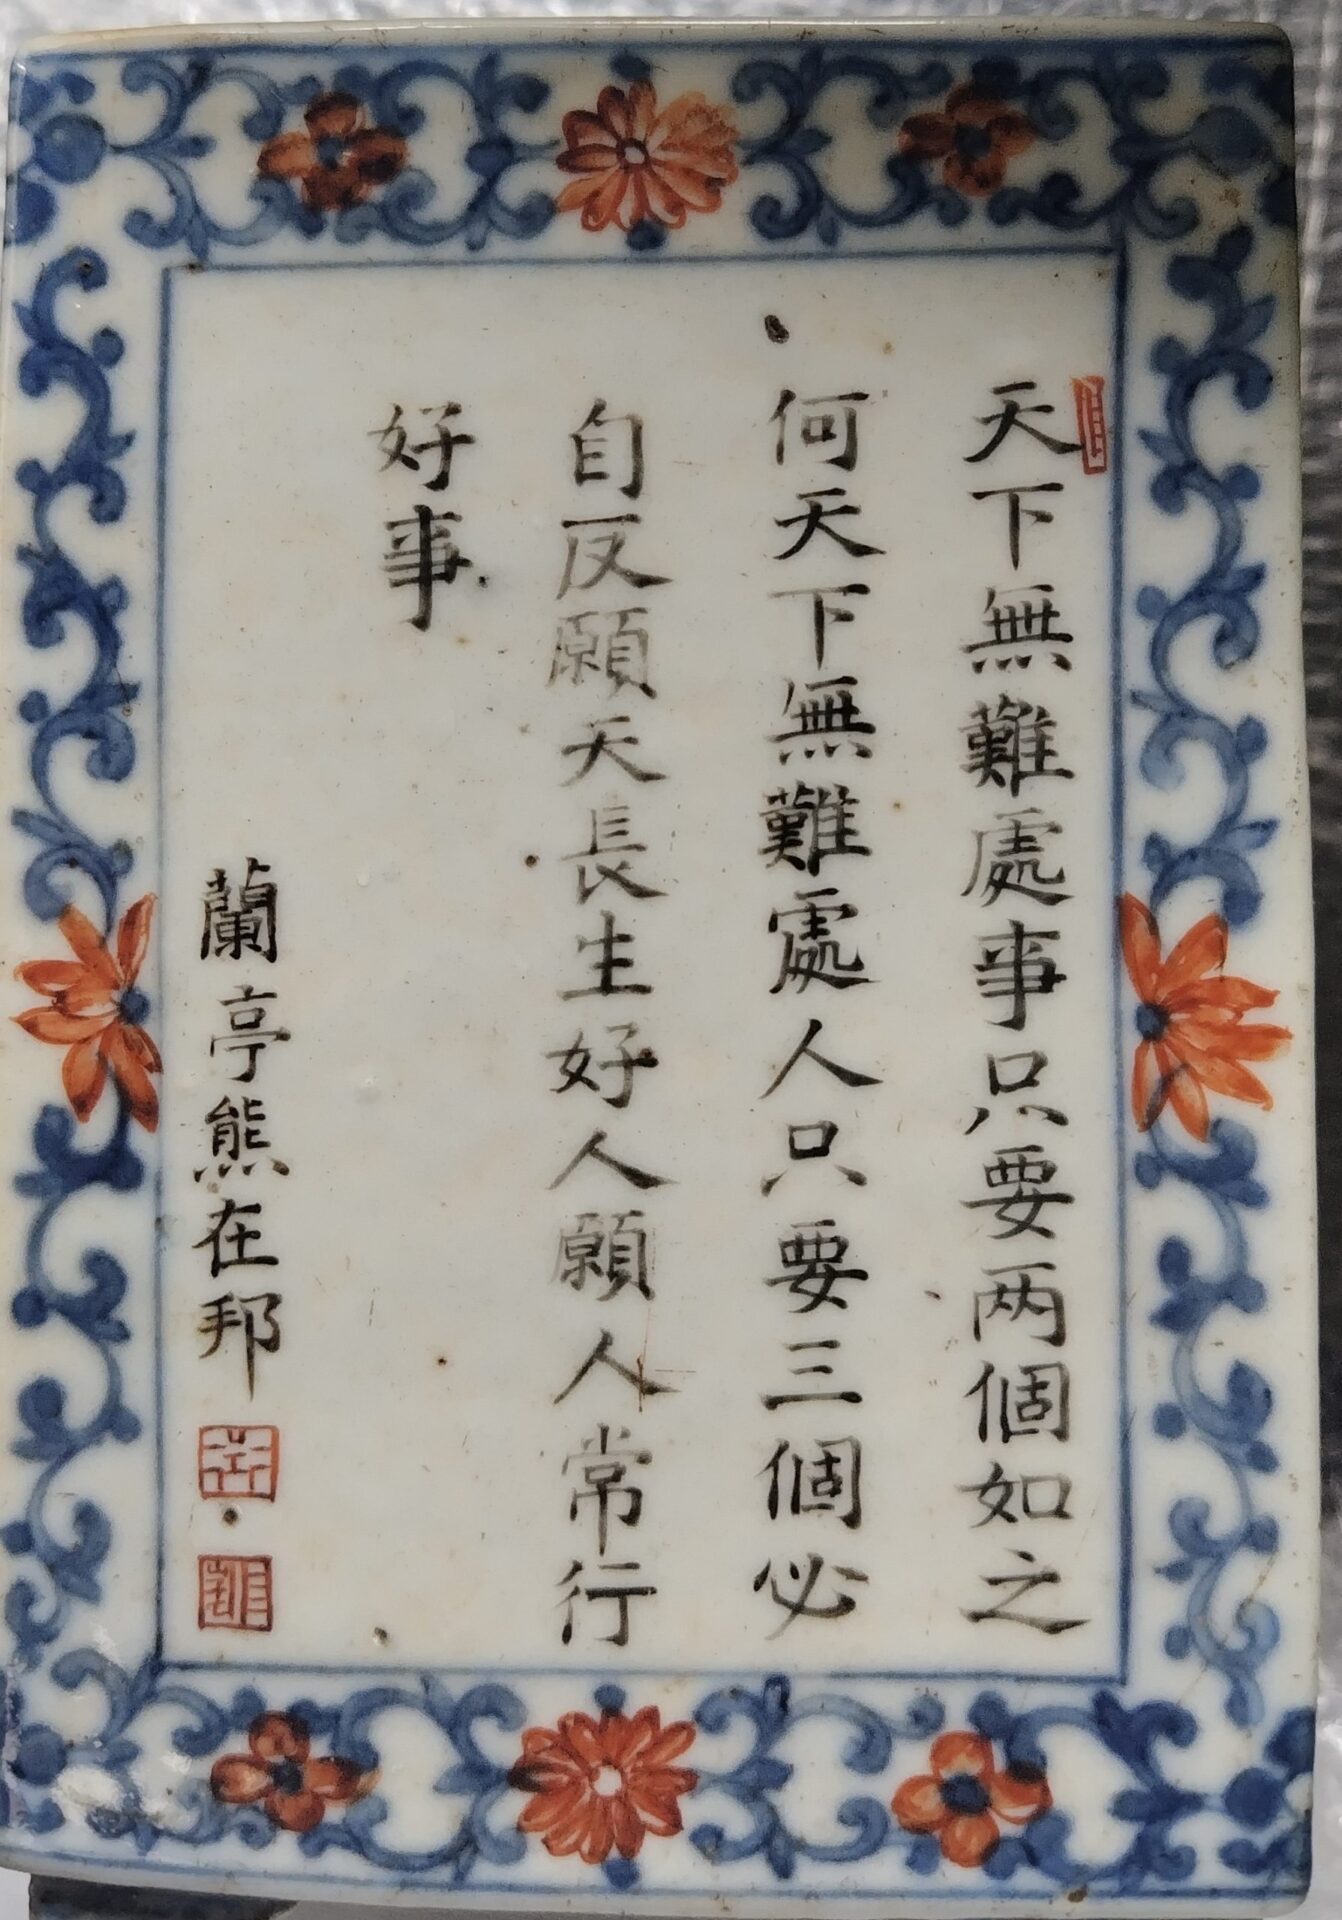 天下無難處事只要两個如之
何天下無難處人只要三個必
自反願天長生好人願人常行
好事
蘭亭熊在邦